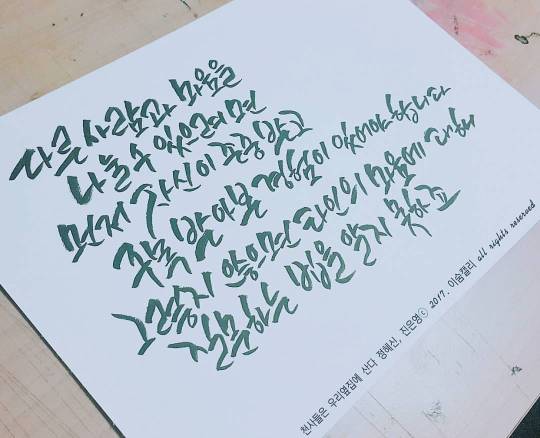 다른 사람과 마음을
나눌 수 있으려면
먼저 자신이 존중 받고
주목 받아본 경험이 있어야 합니다
그렇지 않으면 타인의 마음에 대해
질문하는 법을 알지 못하고
천사들은 우리옆집에 산다 정혜신, 진은영ⓒ 2017. 이숨캘리 all rights reserved